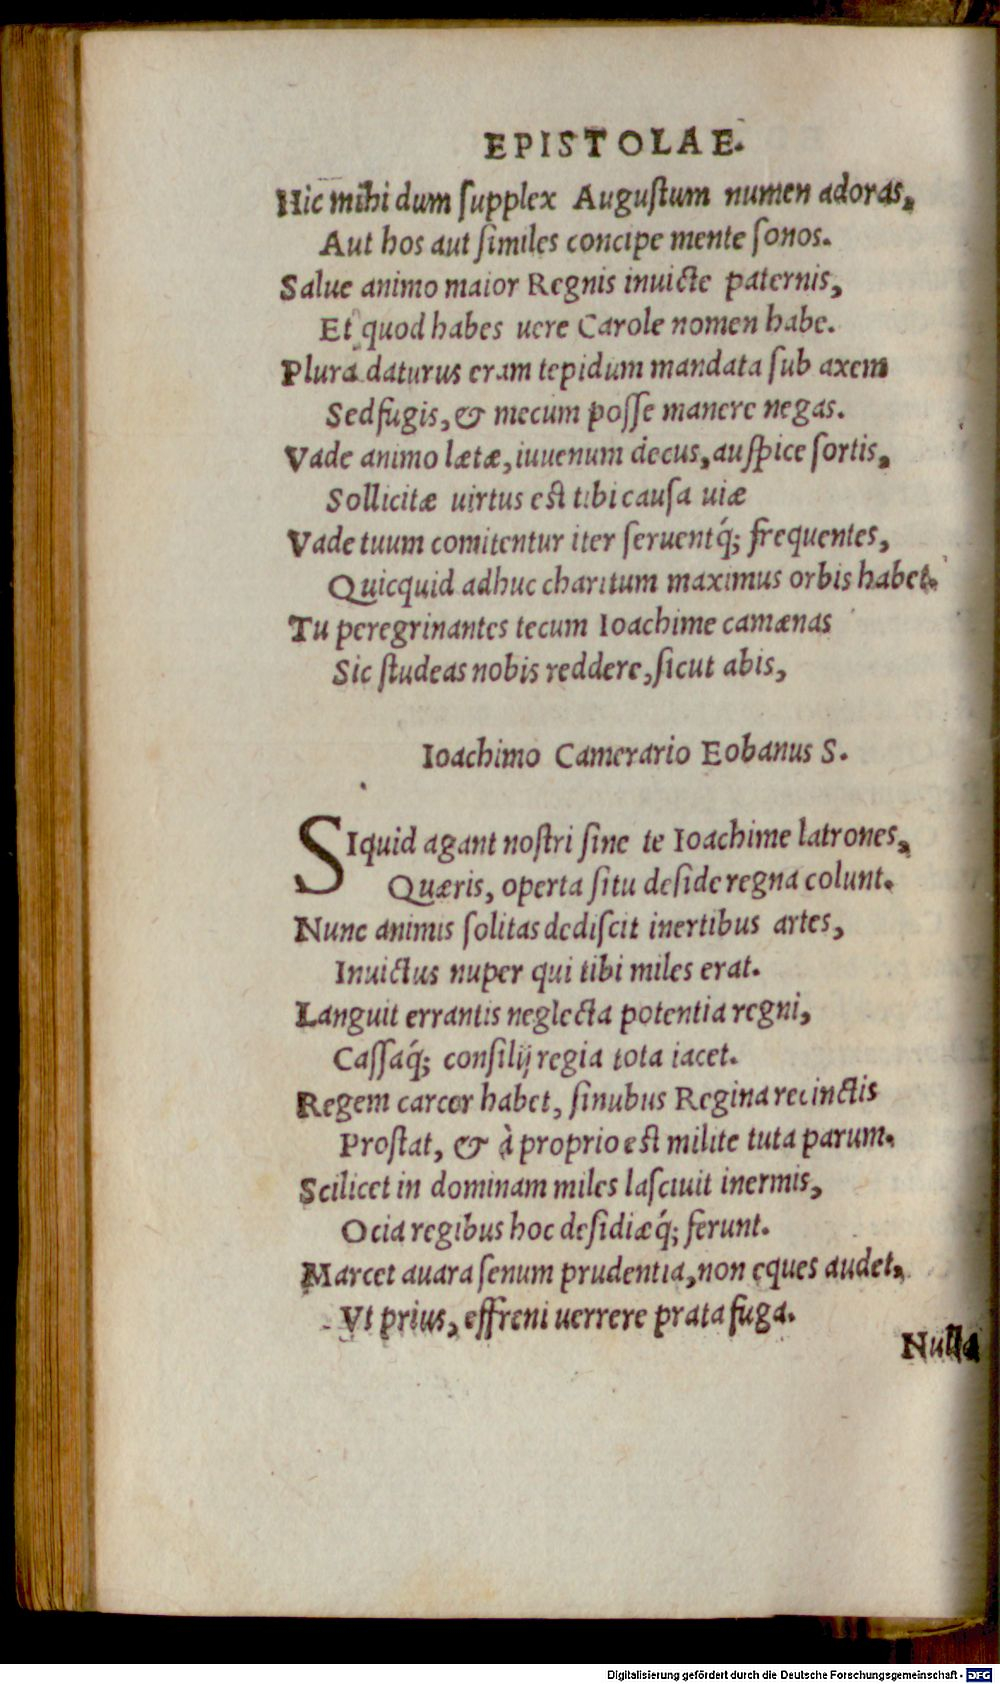 EPISTOLAE.
Hic mihi dum ſupplex Auguſtum numen adoras,
Aut hos aut ſimiles concipe mente ſonos.
Salue animo maior Regnis inuicte paternis,
Et quod habes uere Carole nomen habe.
Plura daturus eram tepidum mandata ſub axem
Sed fugis, & mecum poſſe manere negas.
Vade animo lætæ, iuuenum decus, auſpice ſortis,
Sollicitæ uirtus eſt tibi cauſa uiæ
Vade tuum comitentur iter ſeruentq́; frequentes,
Quicquid adhuc charitum maximus orbis habet.
Tu peregrinantes tecum Ioachime camænas
Sic ſtudeas nobis reddere, ſicut abis,
Ioachimo Camerario Eobanus S.
SIquid agant noſtri ſine te Ioachime latrones,
Quæris, operta ſitu deſide regna colunt.
Nunc animis ſolitas dediſcit inertibus artes,
Inuictus nuper qui tibi miles erat.
Languit errantis neglecta potentia regni,
Caſſaq́; conſilij regia tota iacet.
Regem carcer habet, ſinubus Regina recinctis
Proſtat, & à proprio eſt milite tuta parum.
Scilicet in dominam miles laſciuit inermis,
Ocia regibus hoc deſidiæq́; ferunt.
Marcet auara ſenum prudentia, non eques audet,
Vt prius, effreni uerrere prata fuga.
Nulla
Digitalisierung gefördert durch die Deutsche Forschungsgemeinschaft - DFG